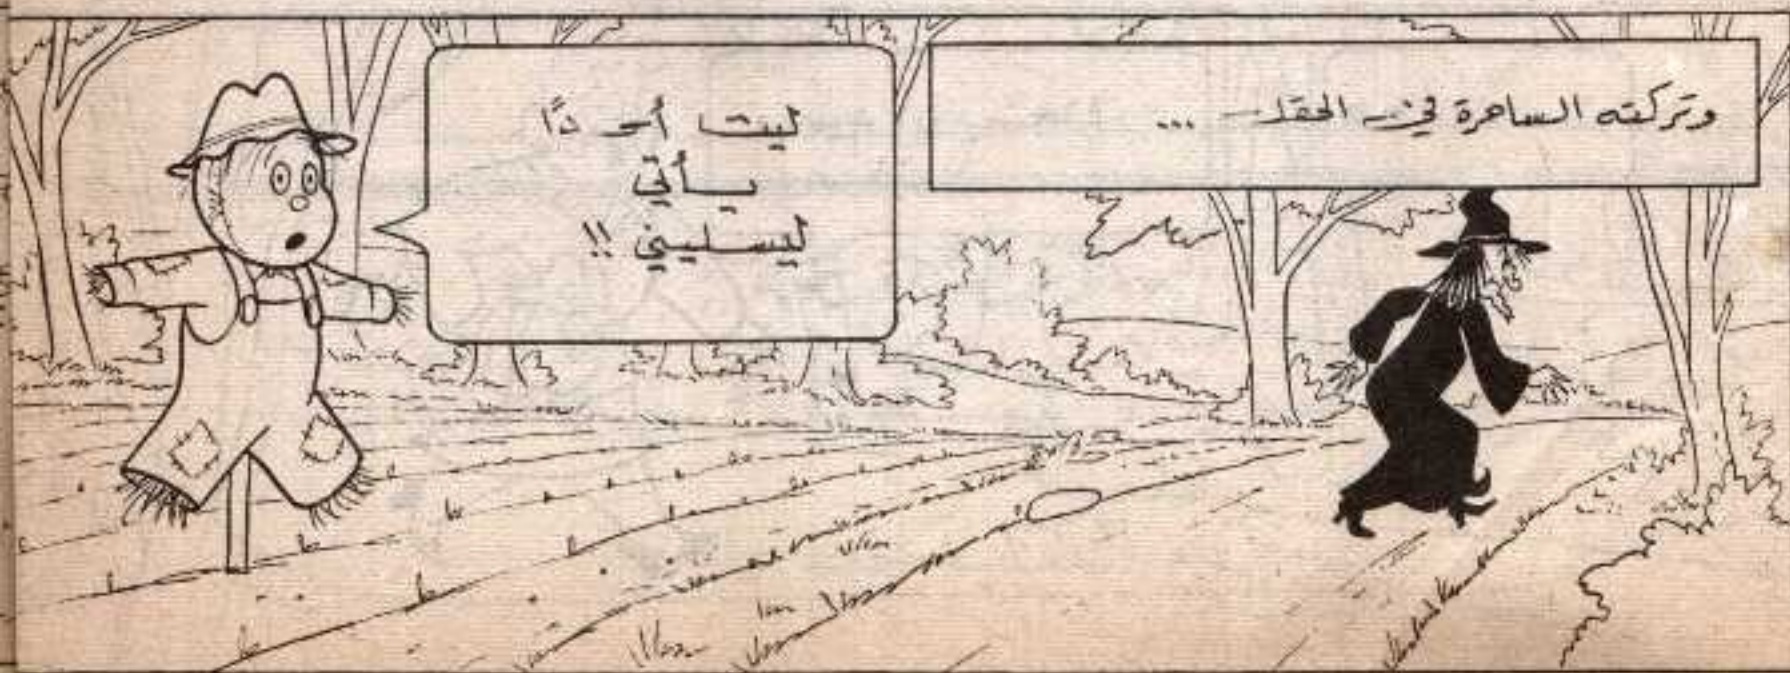 وتركته الساحرة في الحقل ...
ليت أحدًا
يأتي
ليسليني !!